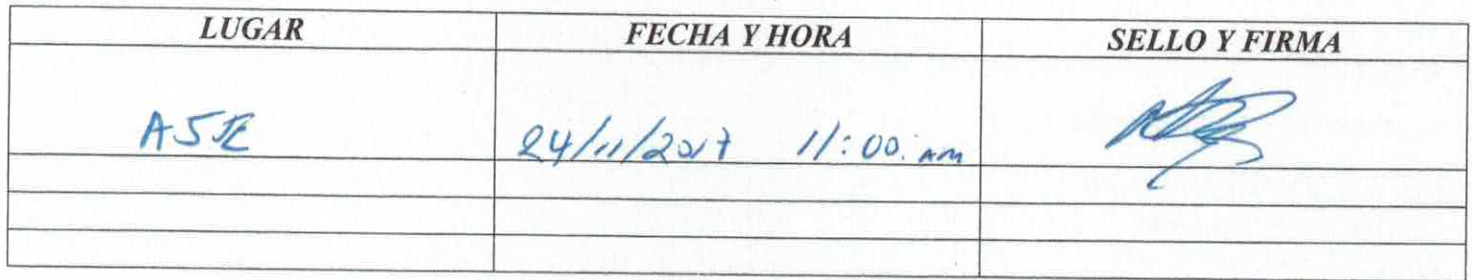 LUGAR FECHA Y HORA SELLO Y FIRMA
ASJE 24/11/2017 11:00. am